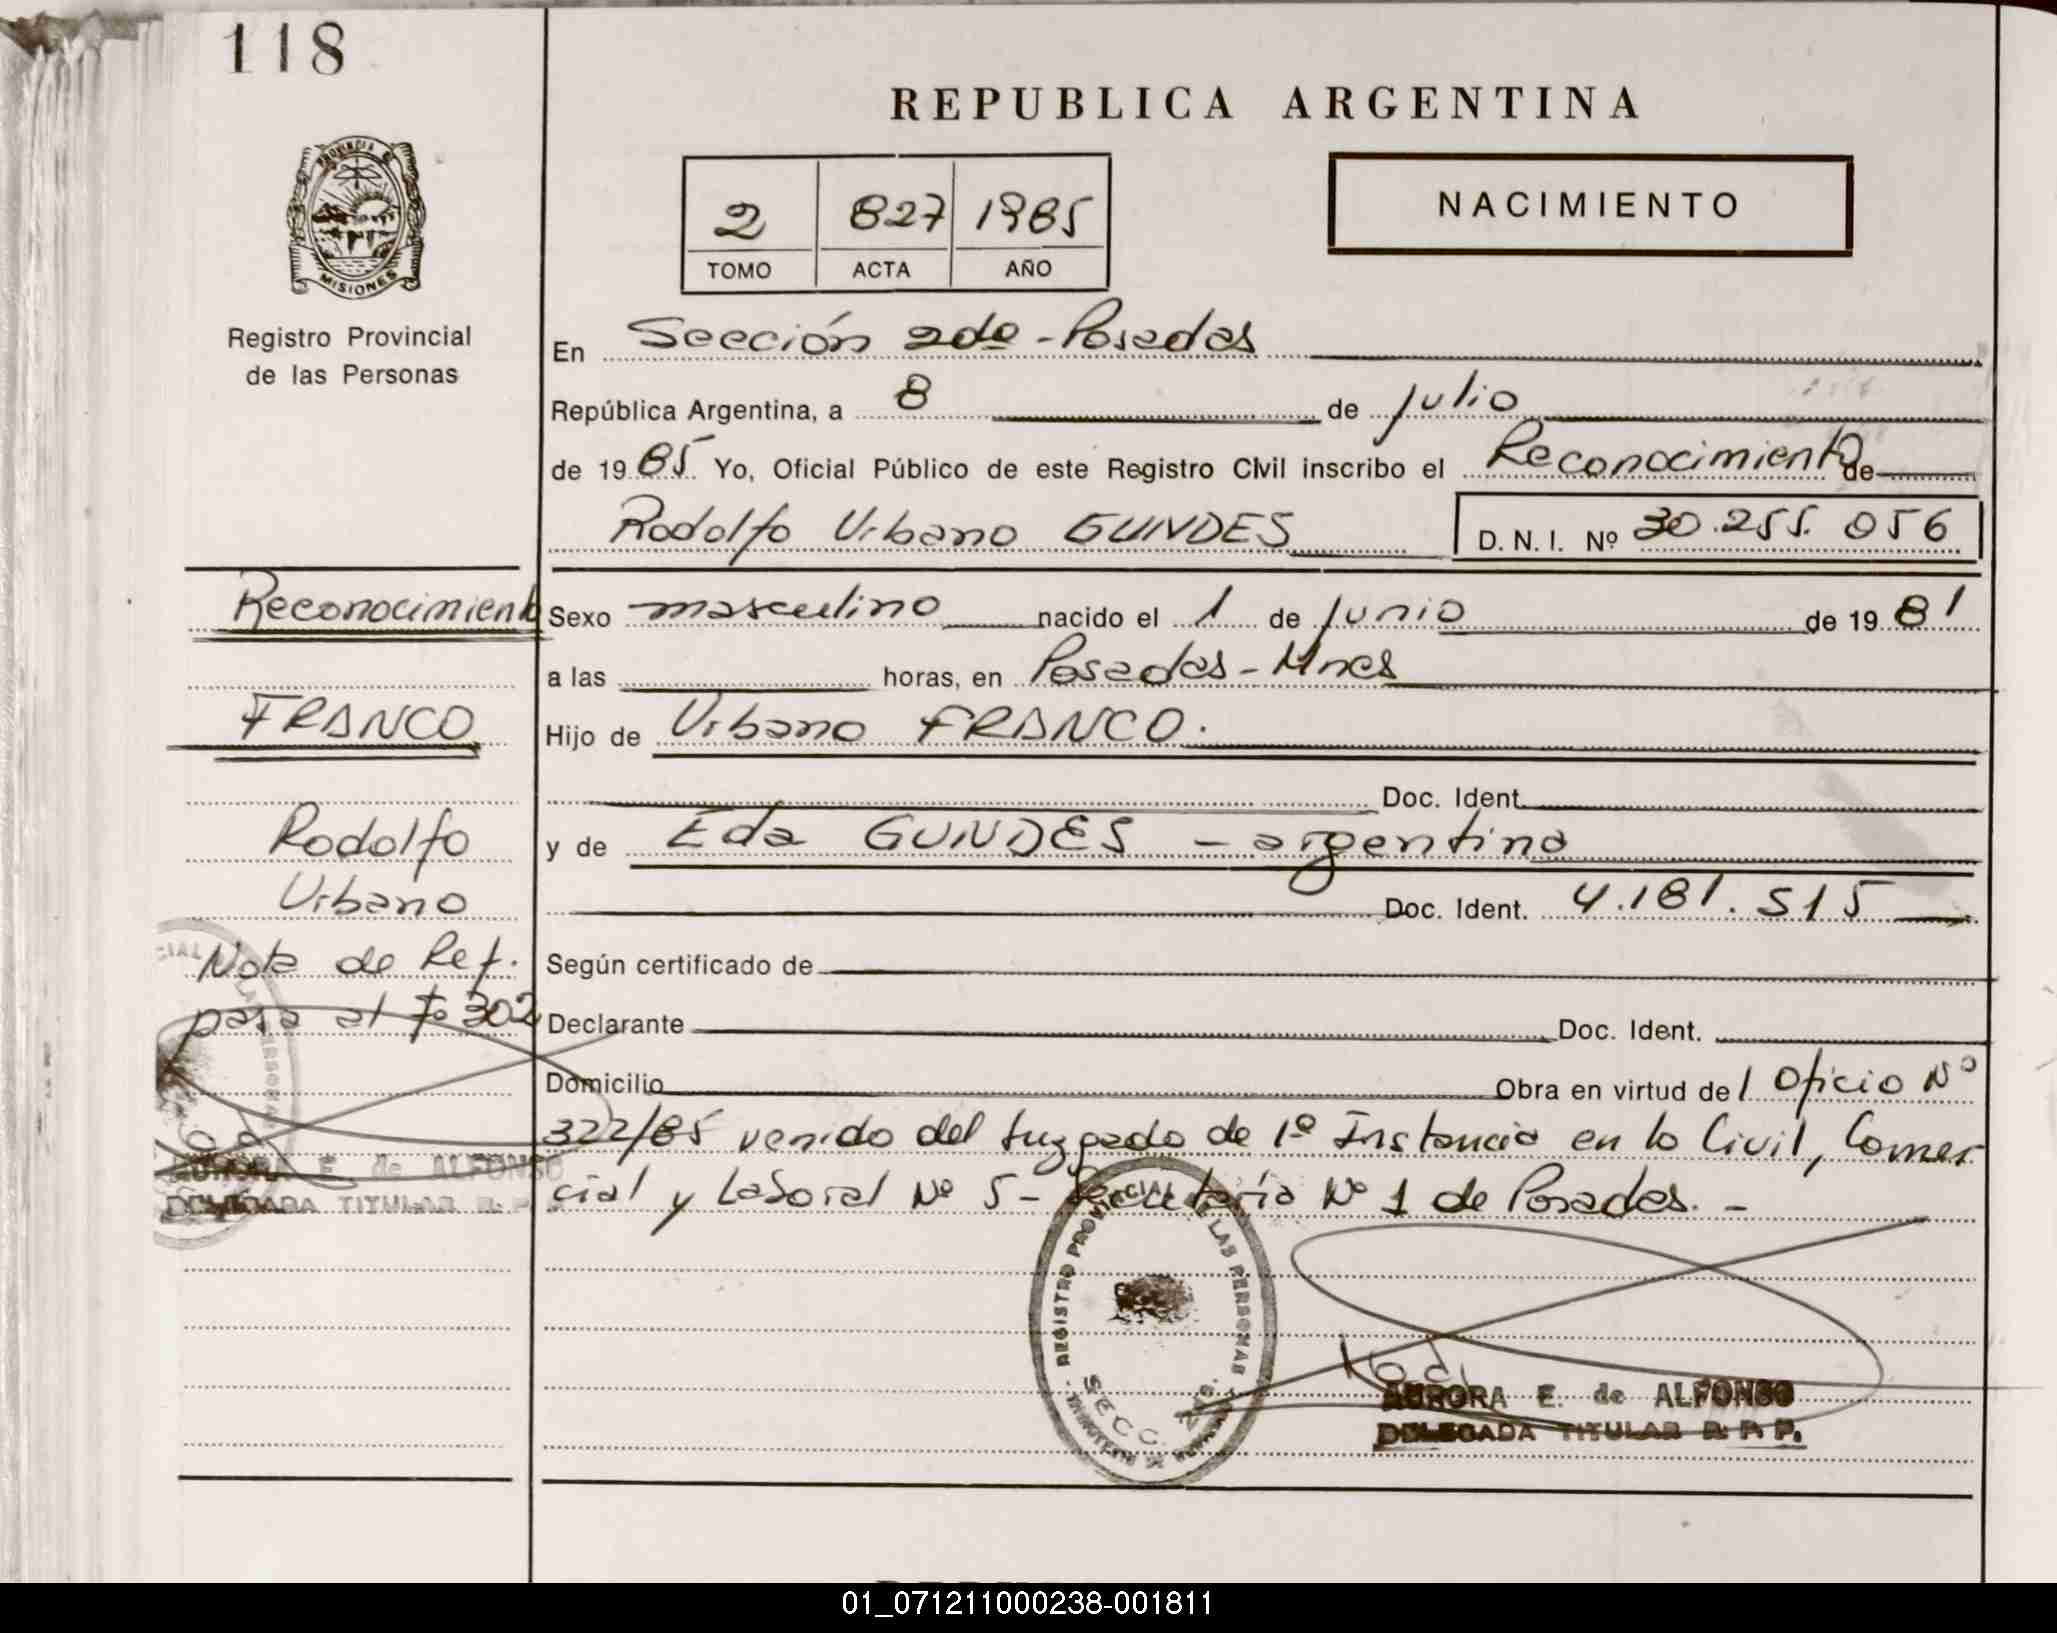 118
REPUBLICA ARGENTINA
PROVINCIA DE
MISIONES
Registro Provincial
de las Personas
2 827 1985
TOMO ACTA AÑO
NACIMIENTO
En Sección 2da - Posadas
República Argentina, a 8 de julio
de 1985 Yo, Oficial Público de este Registro Civil inscribo el Reconocimiento de
Rodolfo Urbano GUNDES D. N. I. Nº 30.255.056
Reconocimiento
FRANCO
Rodolfo
Urbano
Nota de Ref.
pasa al Fº 302
AURORA E. de ALFONSO
DELEGADA TITULAR R. P.
Sexo masculino nacido el 1 de Junio de 1981
a las horas, en Posadas - Mnes
Hijo de Urbano FRANCO.
Doc. Ident.
y de Eda GUNDES - argentina
Doc. Ident. 4.181.515
Según certificado de
Declarante Doc. Ident.
Domicilio Obra en virtud del Oficio Nº
322/85 venido del Juzgado de 1º Instancia en lo Civil, Comer
cial y Laboral Nº 5 - Secretaría Nº 1 de Posadas. -
REGISTRO PROVINCIAL DE LAS PERSONAS
SECC.
AURORA E. de ALFONSO
DELEGADA TITULAR R. P. P.
01_071211000238-001811